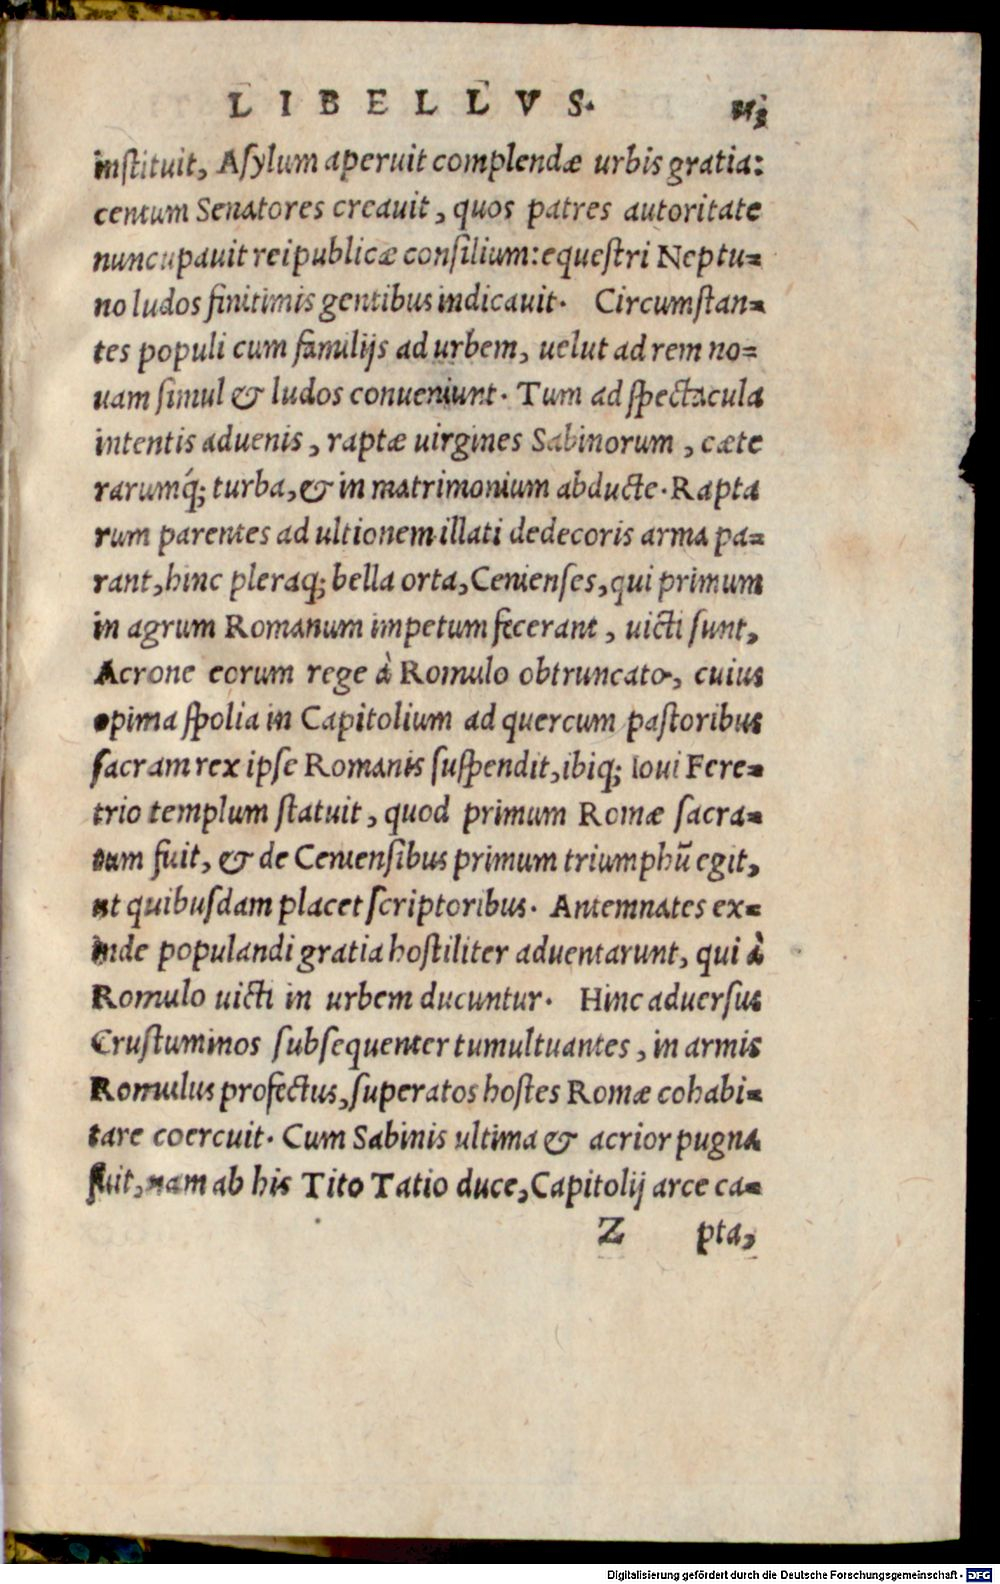 LIBELLVS.
instituit, Asylum aperuit complendæ urbis gratia:
centum Senatores creauit, quos patres autoritate
nuncupauit reipublicæ consilium: equestri Neptu=
no ludos finitimis gentibus indicauit. Circumstan=
tes populi cum familijs ad urbem, uelut ad rem no=
uam simul & ludos conueniunt. Tum ad spectacula
intentis aduenis, raptæ uirgines Sabinorum, cæte
rarumq́; turba, & in matrimonium abducte. Rapta
rum parentes ad ultionem illati dedecoris arma pa=
rant, hinc pleraq; bella orta, Cenienses, qui primum
in agrum Romanum impetum fecerant, uicti sunt,
Acrone eorum rege à Romulo obtruncato, cuius
opima spolia in Capitolium ad quercum pastoribus
sacram rex ipse Romanis suspendit, ibiq; Ioui Fere=
trio templum statuit, quod primum Romæ sacra=
tum fuit, & de Ceniensibus primum triumphū egit,
ut quibusdam placet scriptoribus. Antemnates ex=
inde populandi gratia hostiliter aduentarunt, qui à
Romulo uicti in urbem ducuntur. Hinc aduersus
Crustuminos subsequenter tumultuantes, in armis
Romulus profectus, superatos hostes Romæ cohabi=
tare coercuit. Cum Sabinis ultima & acrior pugna
fuit, nam ab his Tito Tatio duce, Capitolij arce ca=
Z pta,
Digitalisierung gefördert durch die Deutsche Forschungsgemeinschaft - DFG